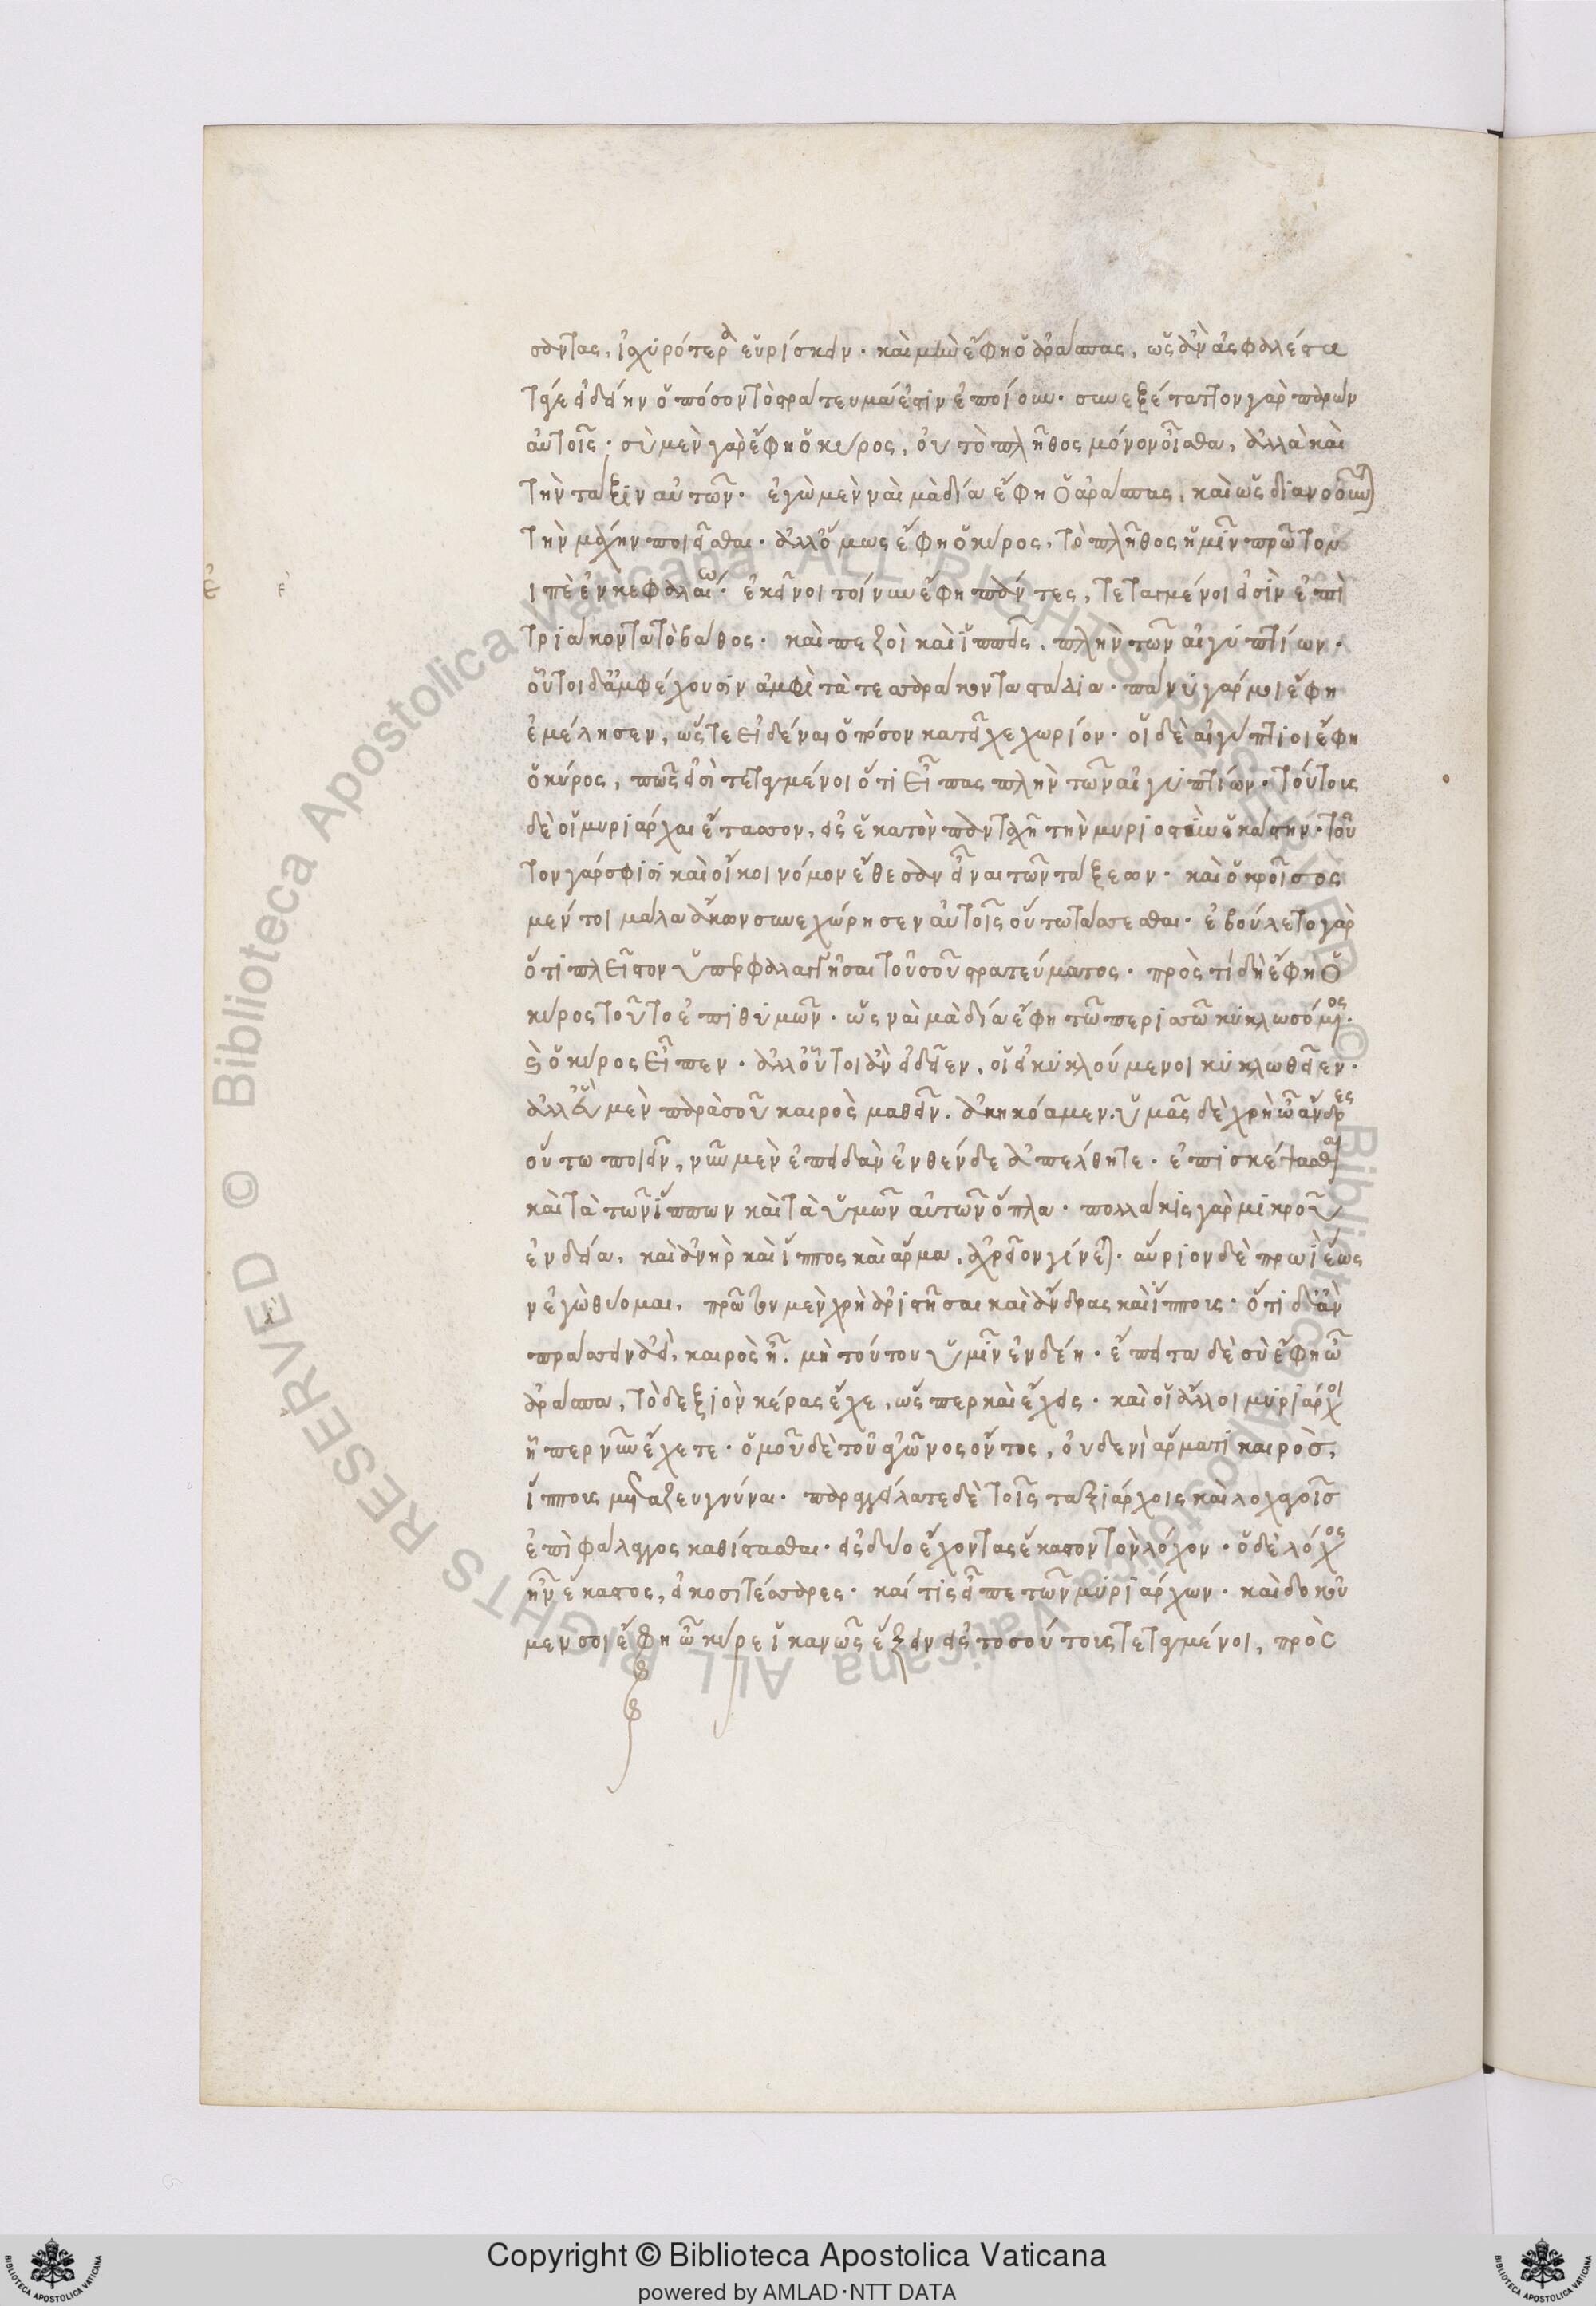 σαντας, ἰσχυρότερα εὑρίσκειν. καὶ μὴν ἔφη ὁ ἀράσπας, ὡς ἂν ἀσφαλέστα
τά γε εἰδείην ὁπόσον τὸ στράτευμά ἐστιν ἐποίουν. συνεξέταττον γὰρ παρὼν
αὐτοῖς. σὺ μὲν γὰρ ἔφη ὁ κύρος, οὐ τὸ πλῆθος μόνον οἶσθα, ἀλλὰ καὶ
τὴν τάξιν αὐτῶν. ἐγὼ μὲν ναὶ μὰ δία ἔφη ὁ ἀράσπας, καὶ ὡς διανοοῦνται
τὴν μάχην ποιεῖσθαι. ἀλλ' ὅμως ἔφη ὁ κύρος, τὸ πλῆθος ἡμῖν πρῶτον
ιπὲ ἐν κεφαλαίω. ἐκεῖνοι τοίνυν ἔφη πάντες, τεταγμένοι εἰσὶν ἐπὶ
τριάκοντα τὸ βάθος. καὶ πεζοὶ καὶ ἱππεῖς, πλὴν τῶν αἰγυπτίων.
οὗτοι δ' ἀμφέχουσιν ἀμφὶ τὰ τεσσαράκοντα στάδια. πάνυ γάρ μοι ἔφη
ἐμέλησεν, ὥστε εἰδέναι ὁπόσον κατεῖχε χωρίον. οἱ δὲ αἰγύπτιοι ἔφη
ὁ κύρος, πῶς εἰσὶ τεταγμένοι ὅτι εἶπας πλὴν τῶν αἰγυπτίων. τούτους
δὲ οἱ μυριάρχαι ἔτασσον, εἰς ἑκατὸν πανταχῆ τὴν μυριοστὺν ἑκάστην. τοῦ
τον γάρ σφισι καὶ οἴκοι νόμον ἔθεσαν εἶναι τῶν τάξεων. καὶ ὁ κροῖσος
μέν τοι μάλα ἄκων συνεχώρησεν αὐτοῖς οὕτω τάσσεσθαι. ἐβούλετο γὰρ
ὅτι πλεῖστον ὑπερφαλαγγῆσαι τοῦ σοῦ στρατεύματος. πρὸς τί δὴ ἔφη ὁ
κύρος τοῦτο ἐπιθυμῶν. ὡς ναὶ μὰ δία ἔφη τῶ περισσῶ κυκλωσόμενος.
καὶ ὁ κύρος εἶπεν. ἀλλ' οὗτοι ἂν εἰδεῖεν, οἱ εἰ κυκλούμενοι κυκλωθεῖεν.
ἀλλ' ἃ μὲν παρὰ σοῦ καιρὸς μαθεῖν, ἀκηκόαμεν. ὑμᾶς δὲ χρὴ ὦ ἄνδρες
οὕτω ποιεῖν, νῦν μὲν ἐπειδὰν ἐνθένδε ἀπέλθητε. ἐπισκέψασθαι
καὶ τὰ τῶν ἵππων καὶ τὰ ὑμῶν αὐτῶν ὅπλα. πολλάκις γὰρ μικροῦ
ἐνδεία, καὶ ἀνὴρ καὶ ἵππος καὶ ἅρμα, ἀχρεῖον γίνεται. αὔριον δὲ πρωῒ ἕως
ν ἐγὼ θύομαι, πρῶτον μὲν χρὴ ἀριστῆσαι καὶ ἄνδρας καὶ ἵππους. ὅτι δ' ἂν
πράσσειν ἀεὶ, καιρὸς ᾖ. μὴ τούτου ὑμῖν ἐνδέη. ἔπειτα δὲ σὺ ἔφη ὦ
ἀράσπα, τὸ δεξιὸν κέρας ἔχε, ὥσπερ καὶ ἔχεις. καὶ οἱ ἄλλοι μυρίαρχοι
ἥπερ νῦν ἔχετε. ὁμοῦ δὲ τοῦ ἀγῶνος ὄντος, οὐδενὶ ἅρματι καιρὸς,
ἵππους μεταζευγνύναι. παραγγείλατε δὲ τοῖς ταξιάρχοις καὶ λοχαγοῖς
ἐπὶ φάλαγγος καθίστασθαι. εἰς δύο ἔχοντας ἕκαστον τὸν λόχον. ὁ δὲ λόχος
ἦν ἕκαστος, εἰκοσιτέσσαρες. καί τις εἶπε τῶν μυριάρχων. καὶ δοκοῦ
μεν σοι ἔφη ὦ κύρε ἱκανῶς ἕξειν εἰς τοσούτους τεταγμένοι, πρὸς
Copyright © Biblioteca Apostolica Vaticana
powered by AMLAD·NTT DATA